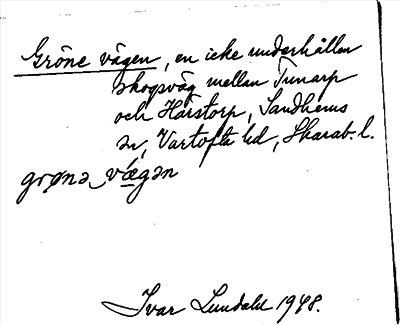 Gröne vägen, en icke underhållen
skogsväg mellan Tunarp
och Hårstorp, Sandhems
sn, Vartofta hd, Skarab. l.
grønə væ̀gən
Ivar Lundahl 1948.